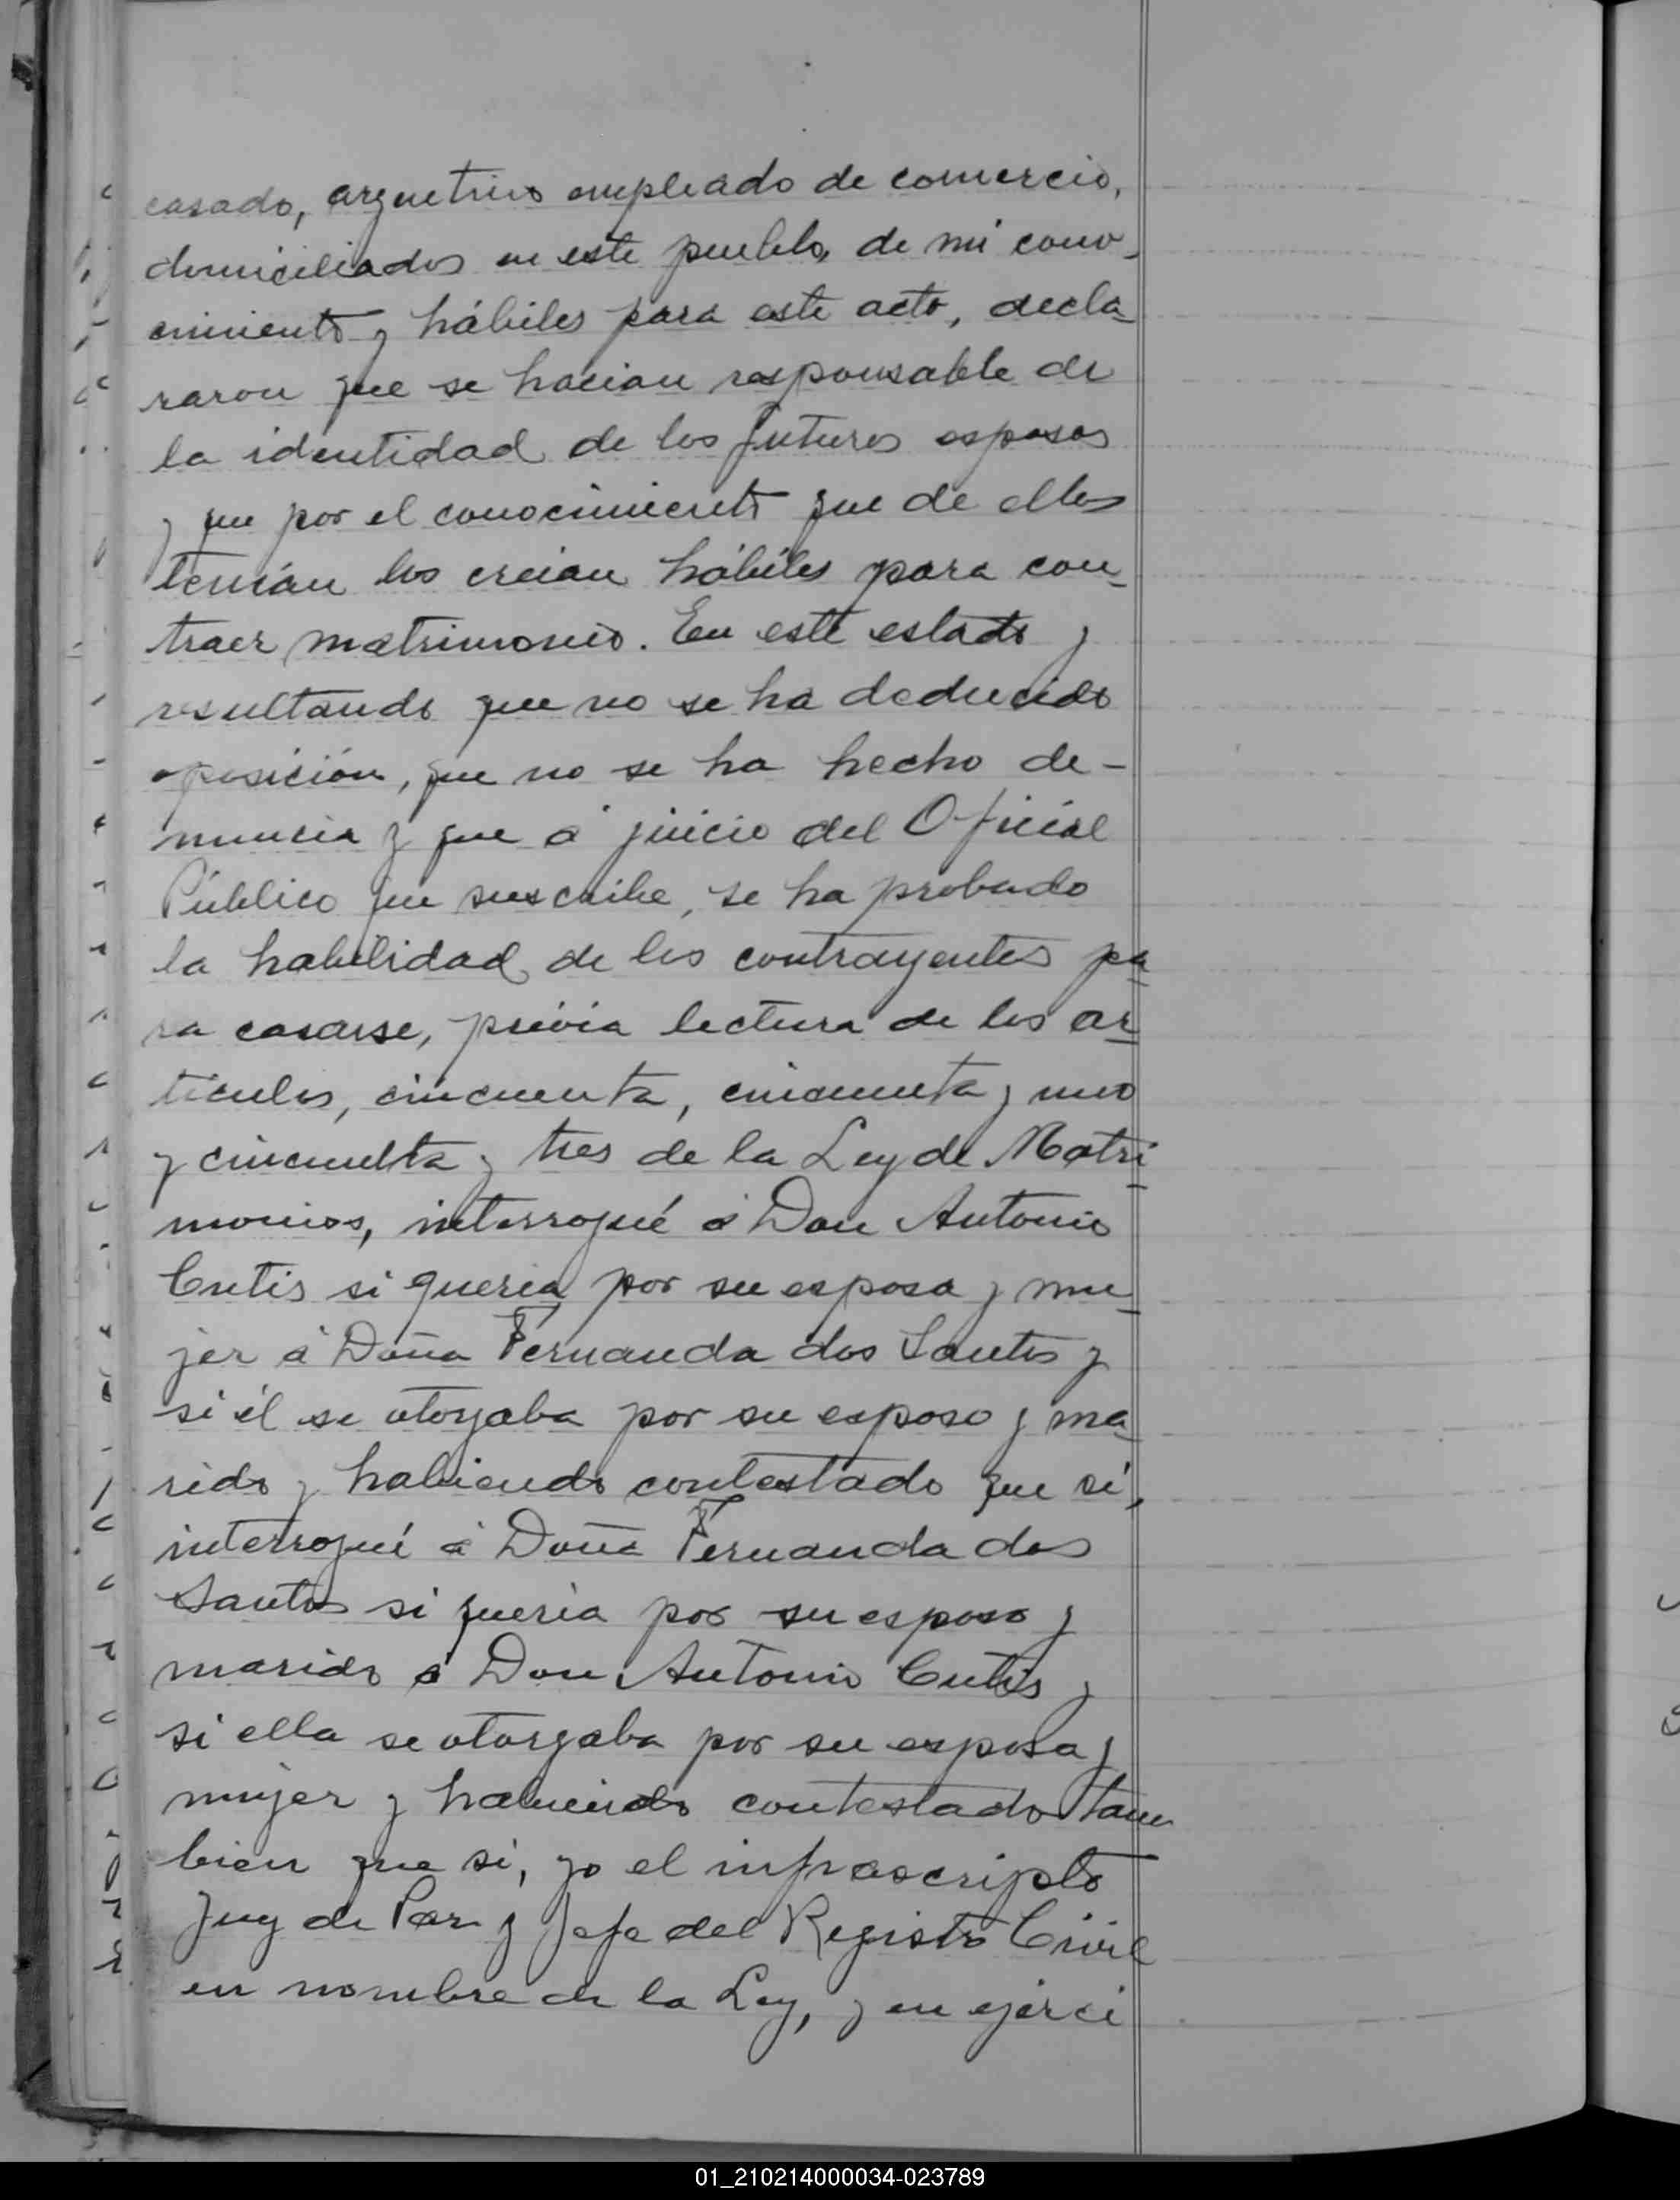 casado, argentino empleado de comercio,
domiciliados en este pueblo, de mi cono-
cimiento y hábiles para este acto, decla-
raron que se hacian responsable de
la identidad de los futuros esposos
y que por el conocimiento que de ellos
tenían los creian hábiles para con-
traer matrimonio. En este estado y
resultando que no se ha deducido
oposición, que no se ha hecho de-
nuncia y que á juicio del Oficial
Público que suscribe, se ha probado
la habilidad de los contrayentes pa-
ra casarse, previa lectura de los ar-
tículos, cincuenta, cincuenta y uno
y cincuenta y tres de la Ley de Matri-
monios, interrogué á Don Antonio
Cutis si queria por su esposa y mu-
jer á Doña Fernanda dos Santos y
si él se otorgaba por su esposo y ma-
rido y habiendo contestado que sí,
interrogué á Doña Fernanda dos
Santos si queria por su esposo y
marido á Don Antonio Cutis y
si ella se otorgaba por su esposa y
mujer y habiendo contestado tam
bien que sí, yo el infrascripto
Juez de Paz y Jefe del Registro Civil
en nombre de la Ley, y en ejerci
01_210214000034-023789